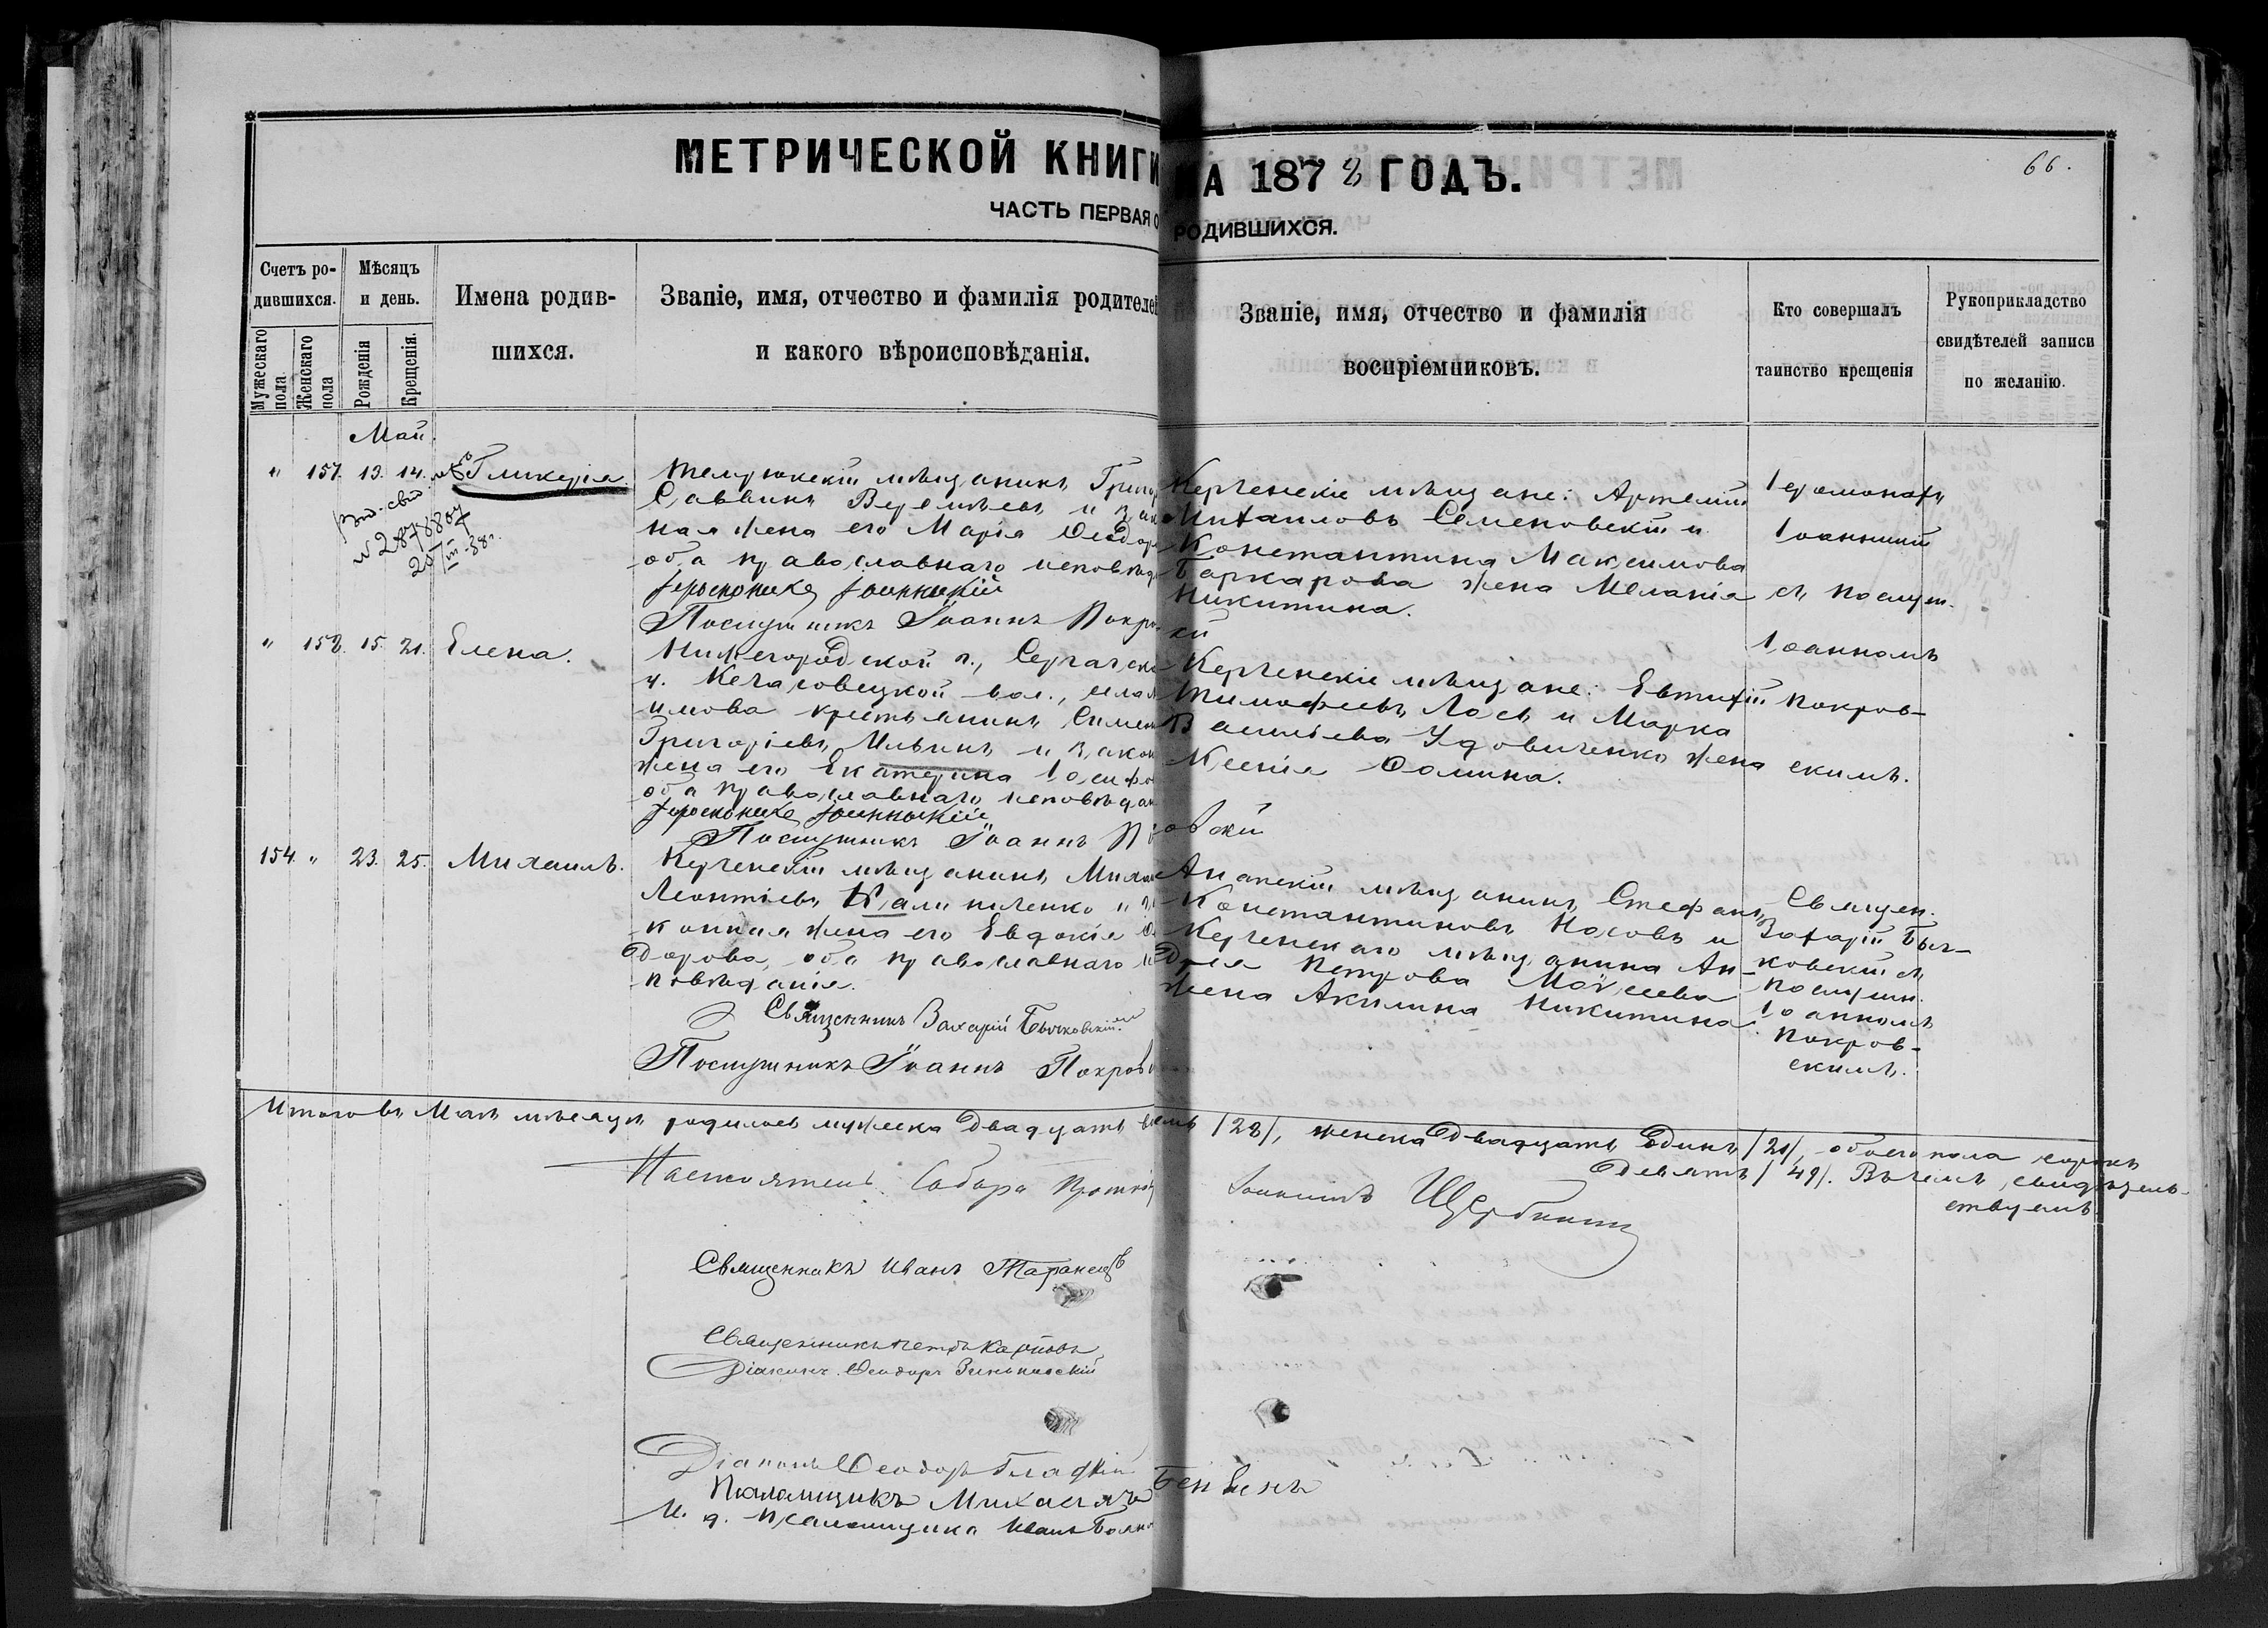 МЕТРИЧЕСКОЙ КНИГИ НА 1878 ГОДЪ.
66.
ЧАСТЬ ПЕРВАЯ О РОДИВШИХСЯ.
Счетъ ро-
дившихся.
Мужескаго пола
Женскаго пола
Мѣсяцъ
и день.
Рожденія
Крещенія.
Имена родив-
шихся.
Званіе, имя, отчество и фамилія родителей
и какого вѣроисповѣданія.
Званіе, имя, отчество и фамилія
воспріемниковъ.
Кто совершалъ
таинство крещенія
Рукоприкладство
свидѣтелей записи
по желанію.
Май.
" 157. 13. 14. Гликерія
№ 28788
Темрюкскій мѣщанинъ Григор
Саввинъ Веремѣевъ и зак
ная жена его Марія Ѳеодор
оба православнаго исповѣд
Іеромонахъ Іоанникій
Послушникъ Іоаннъ Покровскій
Керченскіе мѣщане: Артемій
Михаиловъ Семеновскій и
Константина Максимова
жена Меланія
Никитина.
Іеромонахъ
Іоанникій
съ послуш.
Іоанномъ
Покров-
скимъ.
" 158. 15. 21. Елена.
Нижегородской г., Сергачска
у. вол., села
имова крестьянинъ Симео
Григоріевъ Ильинъ и закон
жена его Екатерина Іосифо
оба православнаго исповѣдан
Іеромонахъ Іоанникій
Послушникъ Іоаннъ Покровскій
Керченскіе мѣщане: Евтихій
Тимофеевъ Лось и Марка
Васильева Удовиченко жена
Ксенія Ѳомина.
154 " 23. 25. Михаилъ.
Керченскій мѣщанинъ Миха
Леонтіевъ Калиниченко и за
конная жена его Евдокія Ѳе
дорова, оба православнаго ис
повѣданія.
Священникъ Захарій Бычковскій
Послушникъ Іоаннъ Покровс
Анапскій мѣщанинъ Стефанъ
Константиновъ Носовъ и
Керченскаго мѣщанина Ан-
дрея Петрова Моисеева
жена Акилина Никитина
Священ.
Захарій Быч-
ковскій съ
послушн.
Іоанномъ
Покров-
скимъ.
Итого въ Маѣ мѣсяцѣ родилось мужеска двадцать восемь /28/, женска двадцать одинъ /21/, обоего пола сорокъ
девять /49/. Въ чемъ, свидѣтель-
ствуемъ
Настоятель Собора Протоіер Іоаннъ Щербинин
Священникъ Иванъ Таранецъ
Священникъ Петръ Карповъ
Діаконъ Ѳеодоръ Зиньковскій
Діаконъ Ѳеодоръ Гладкій
Псаломщикъ Михаилъ
И. д. псаломщика Иванъ